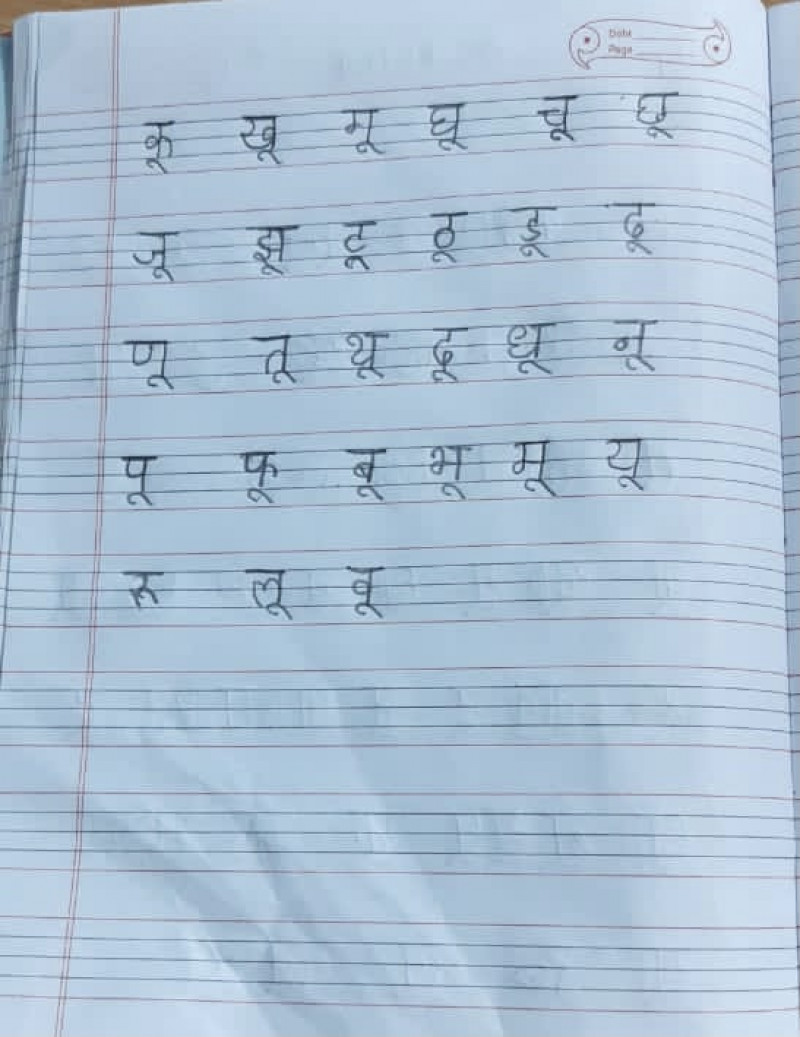 Date
Page
कू खू गू घू चू छू
जू झू टू ठू डू ढू
णू तू थू दू धू नू
पू फू बू भू मू यू
रू लू वू